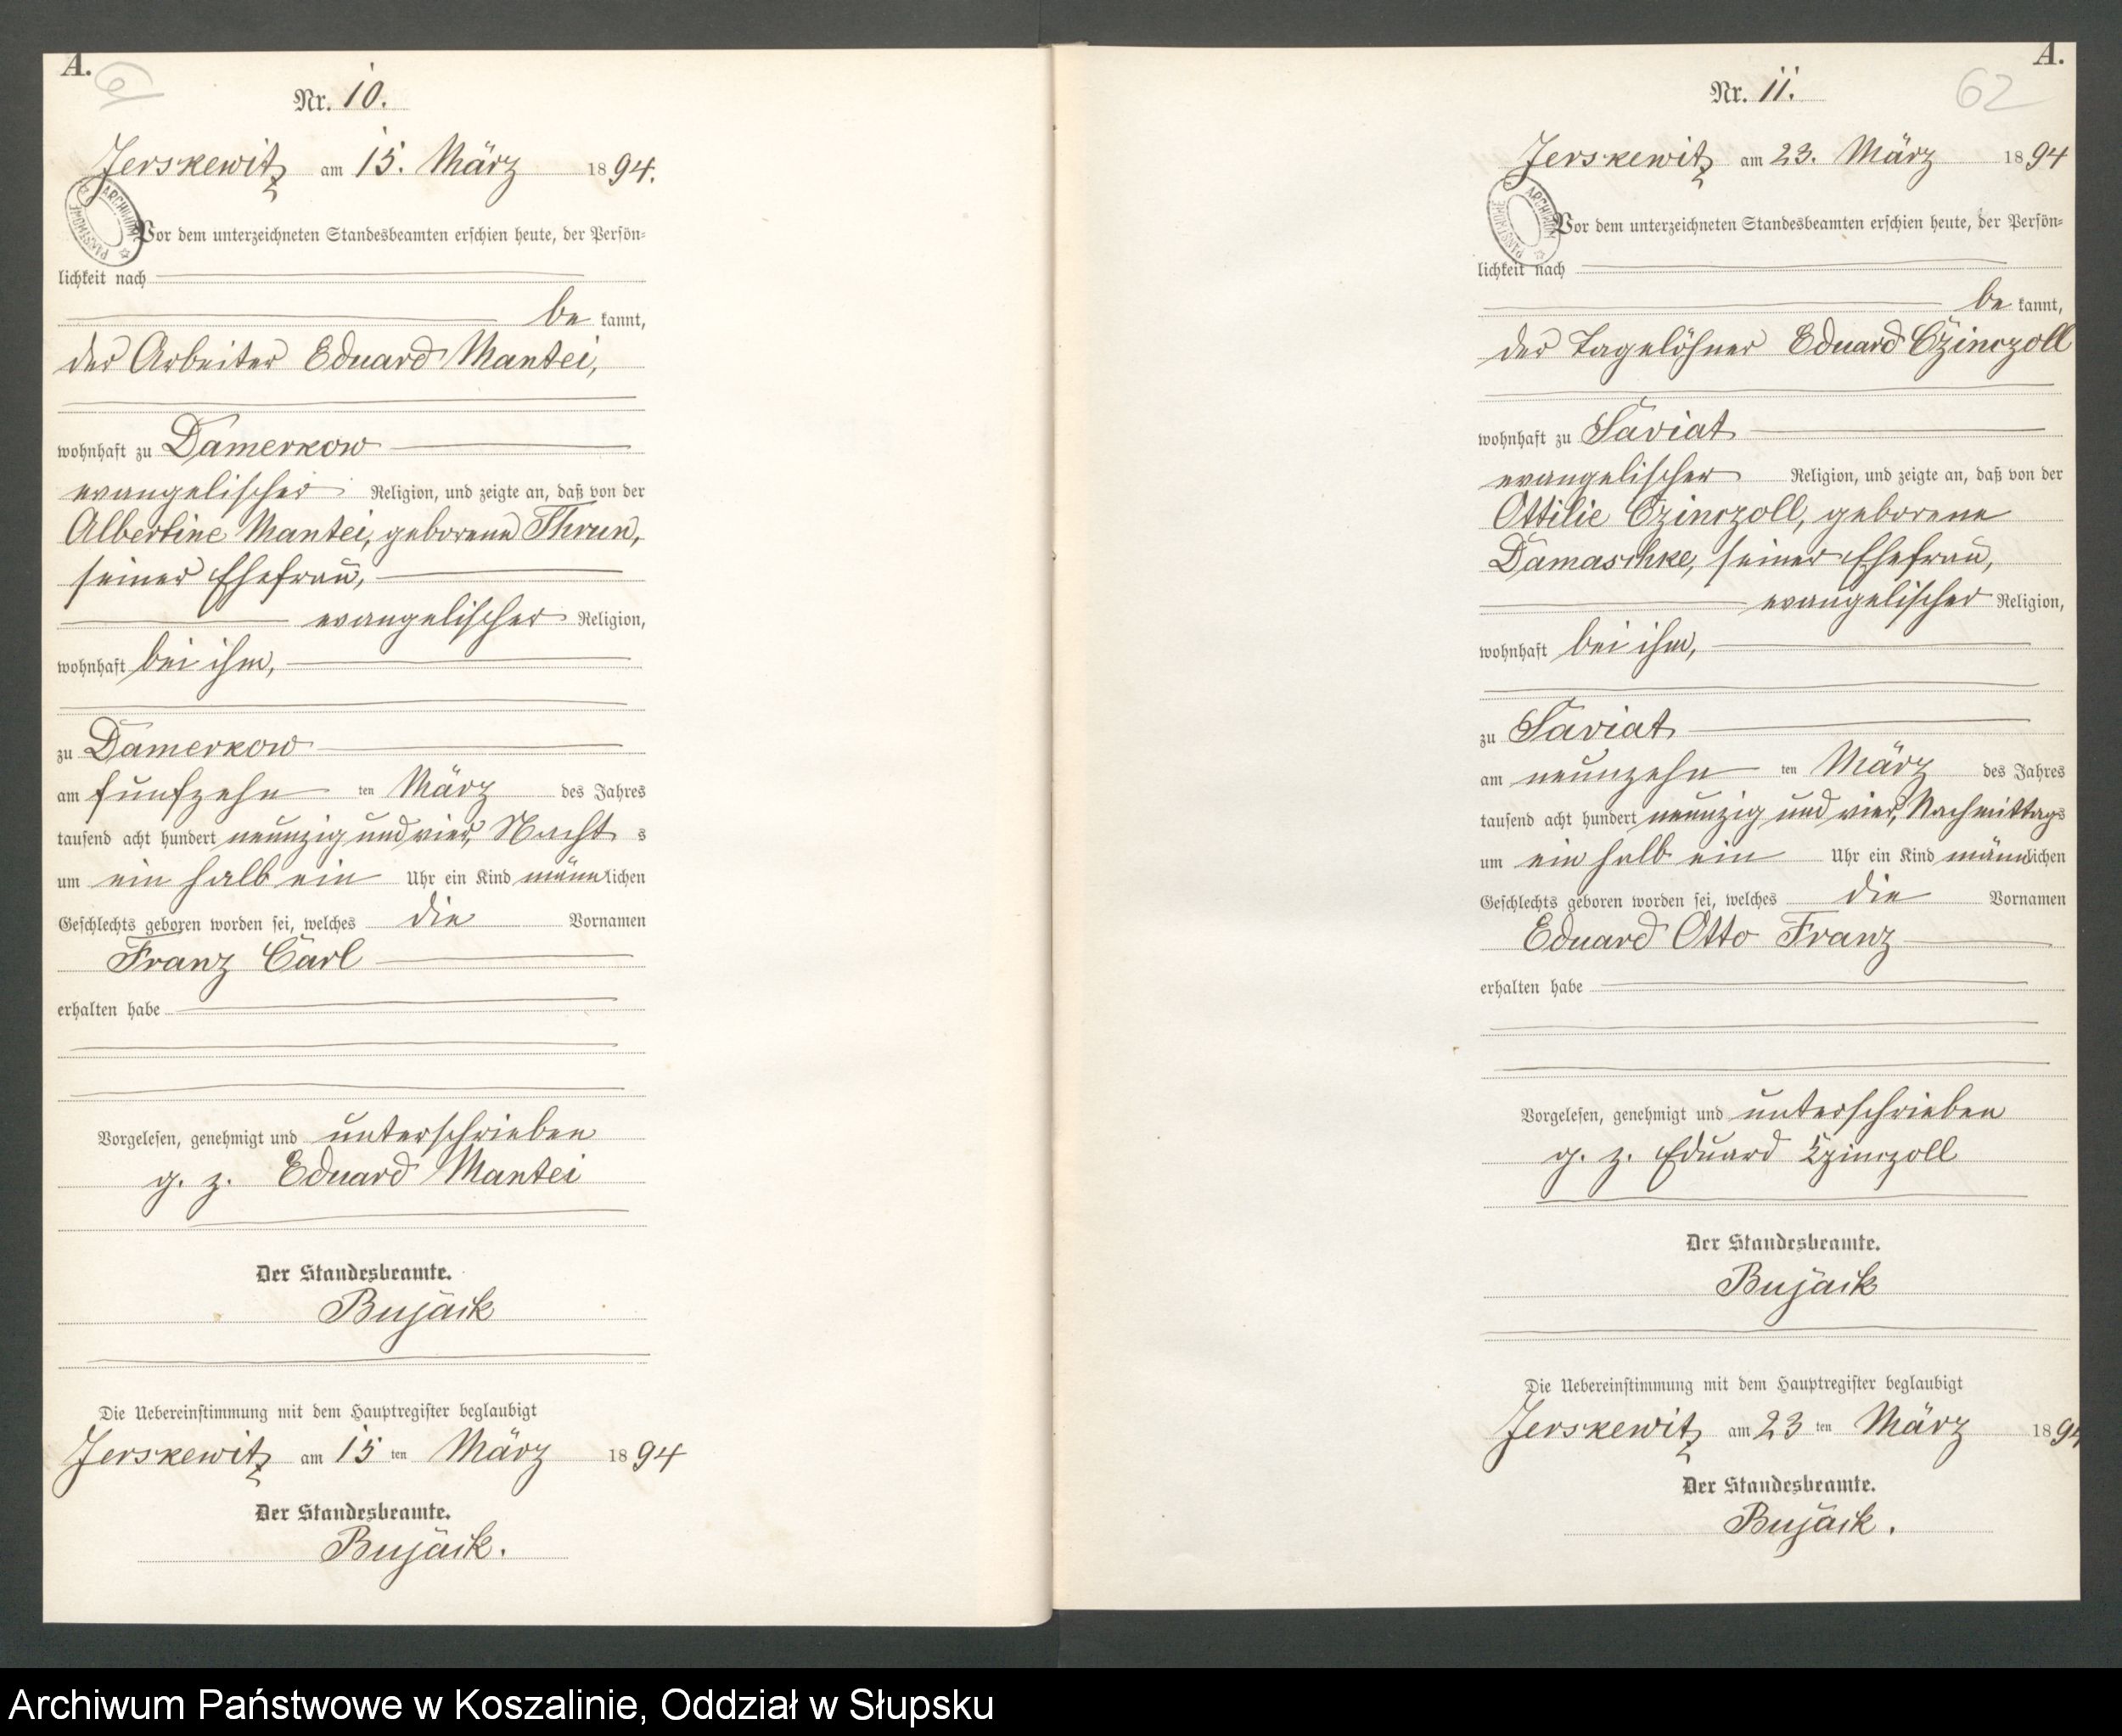 A.
Nr. 10.
Jerskewitz am 15. März 1894.
ARCHIWUM PAŃSTWOWE
Vor dem unterzeichneten Standesbeamten erschien heute, der Persön-
lichkeit nach
be kannt,
der Arbeiter Eduard Mantei,
wohnhaft zu Damerkow
evangelischer Religion, und zeigte an, daß von der
Albertine Mantei, geborene Thrun,
seiner Ehefrau,
evangelischer Religion,
wohnhaft bei ihm,
zu Damerkow
am fünfzehn ten März des Jahres
tausend acht hundert neunzig und vier, Nacht s
um ein halb ein Uhr ein Kind männlichen
Geschlechts geboren worden sei, welches die Vornamen
Franz Carl
erhalten habe
Vorgelesen, genehmigt und unterschrieben
g. z. Eduard Mantei
Der Standesbeamte.
Bujack
Die Uebereinstimmung mit dem Hauptregister beglaubigt
Jerskewitz am 15 ten März 1894
Der Standesbeamte.
Bujack.
A.
62
Nr. 11.
Jerskewitz am 23. März 1894
ARCHIWUM PAŃSTWOWE
Vor dem unterzeichneten Standesbeamten erschien heute, der Persön-
lichkeit nach
be kannt,
der Tagelöhner Eduard Czinczoll
wohnhaft zu Saviat
evangelischer Religion, und zeigte an, daß von der
Ottilie Czinczoll, geborene
Damaschke, seiner Ehefrau,
evangelischer Religion,
wohnhaft bei ihm,
zu Saviat
am neunzehn ten März des Jahres
tausend acht hundert neunzig und vier, Nachmittags
um ein halb ein Uhr ein Kind männlichen
Geschlechts geboren worden sei, welches die Vornamen
Eduard Otto Franz
erhalten habe
Vorgelesen, genehmigt und unterschrieben
g. z. Eduard Czinczoll
Der Standesbeamte.
Bujack
Die Uebereinstimmung mit dem Hauptregister beglaubigt
Jerskewitz am 23 ten März 1894
Der Standesbeamte.
Bujack.
Archiwum Państwowe w Koszalinie, Oddział w Słupsku